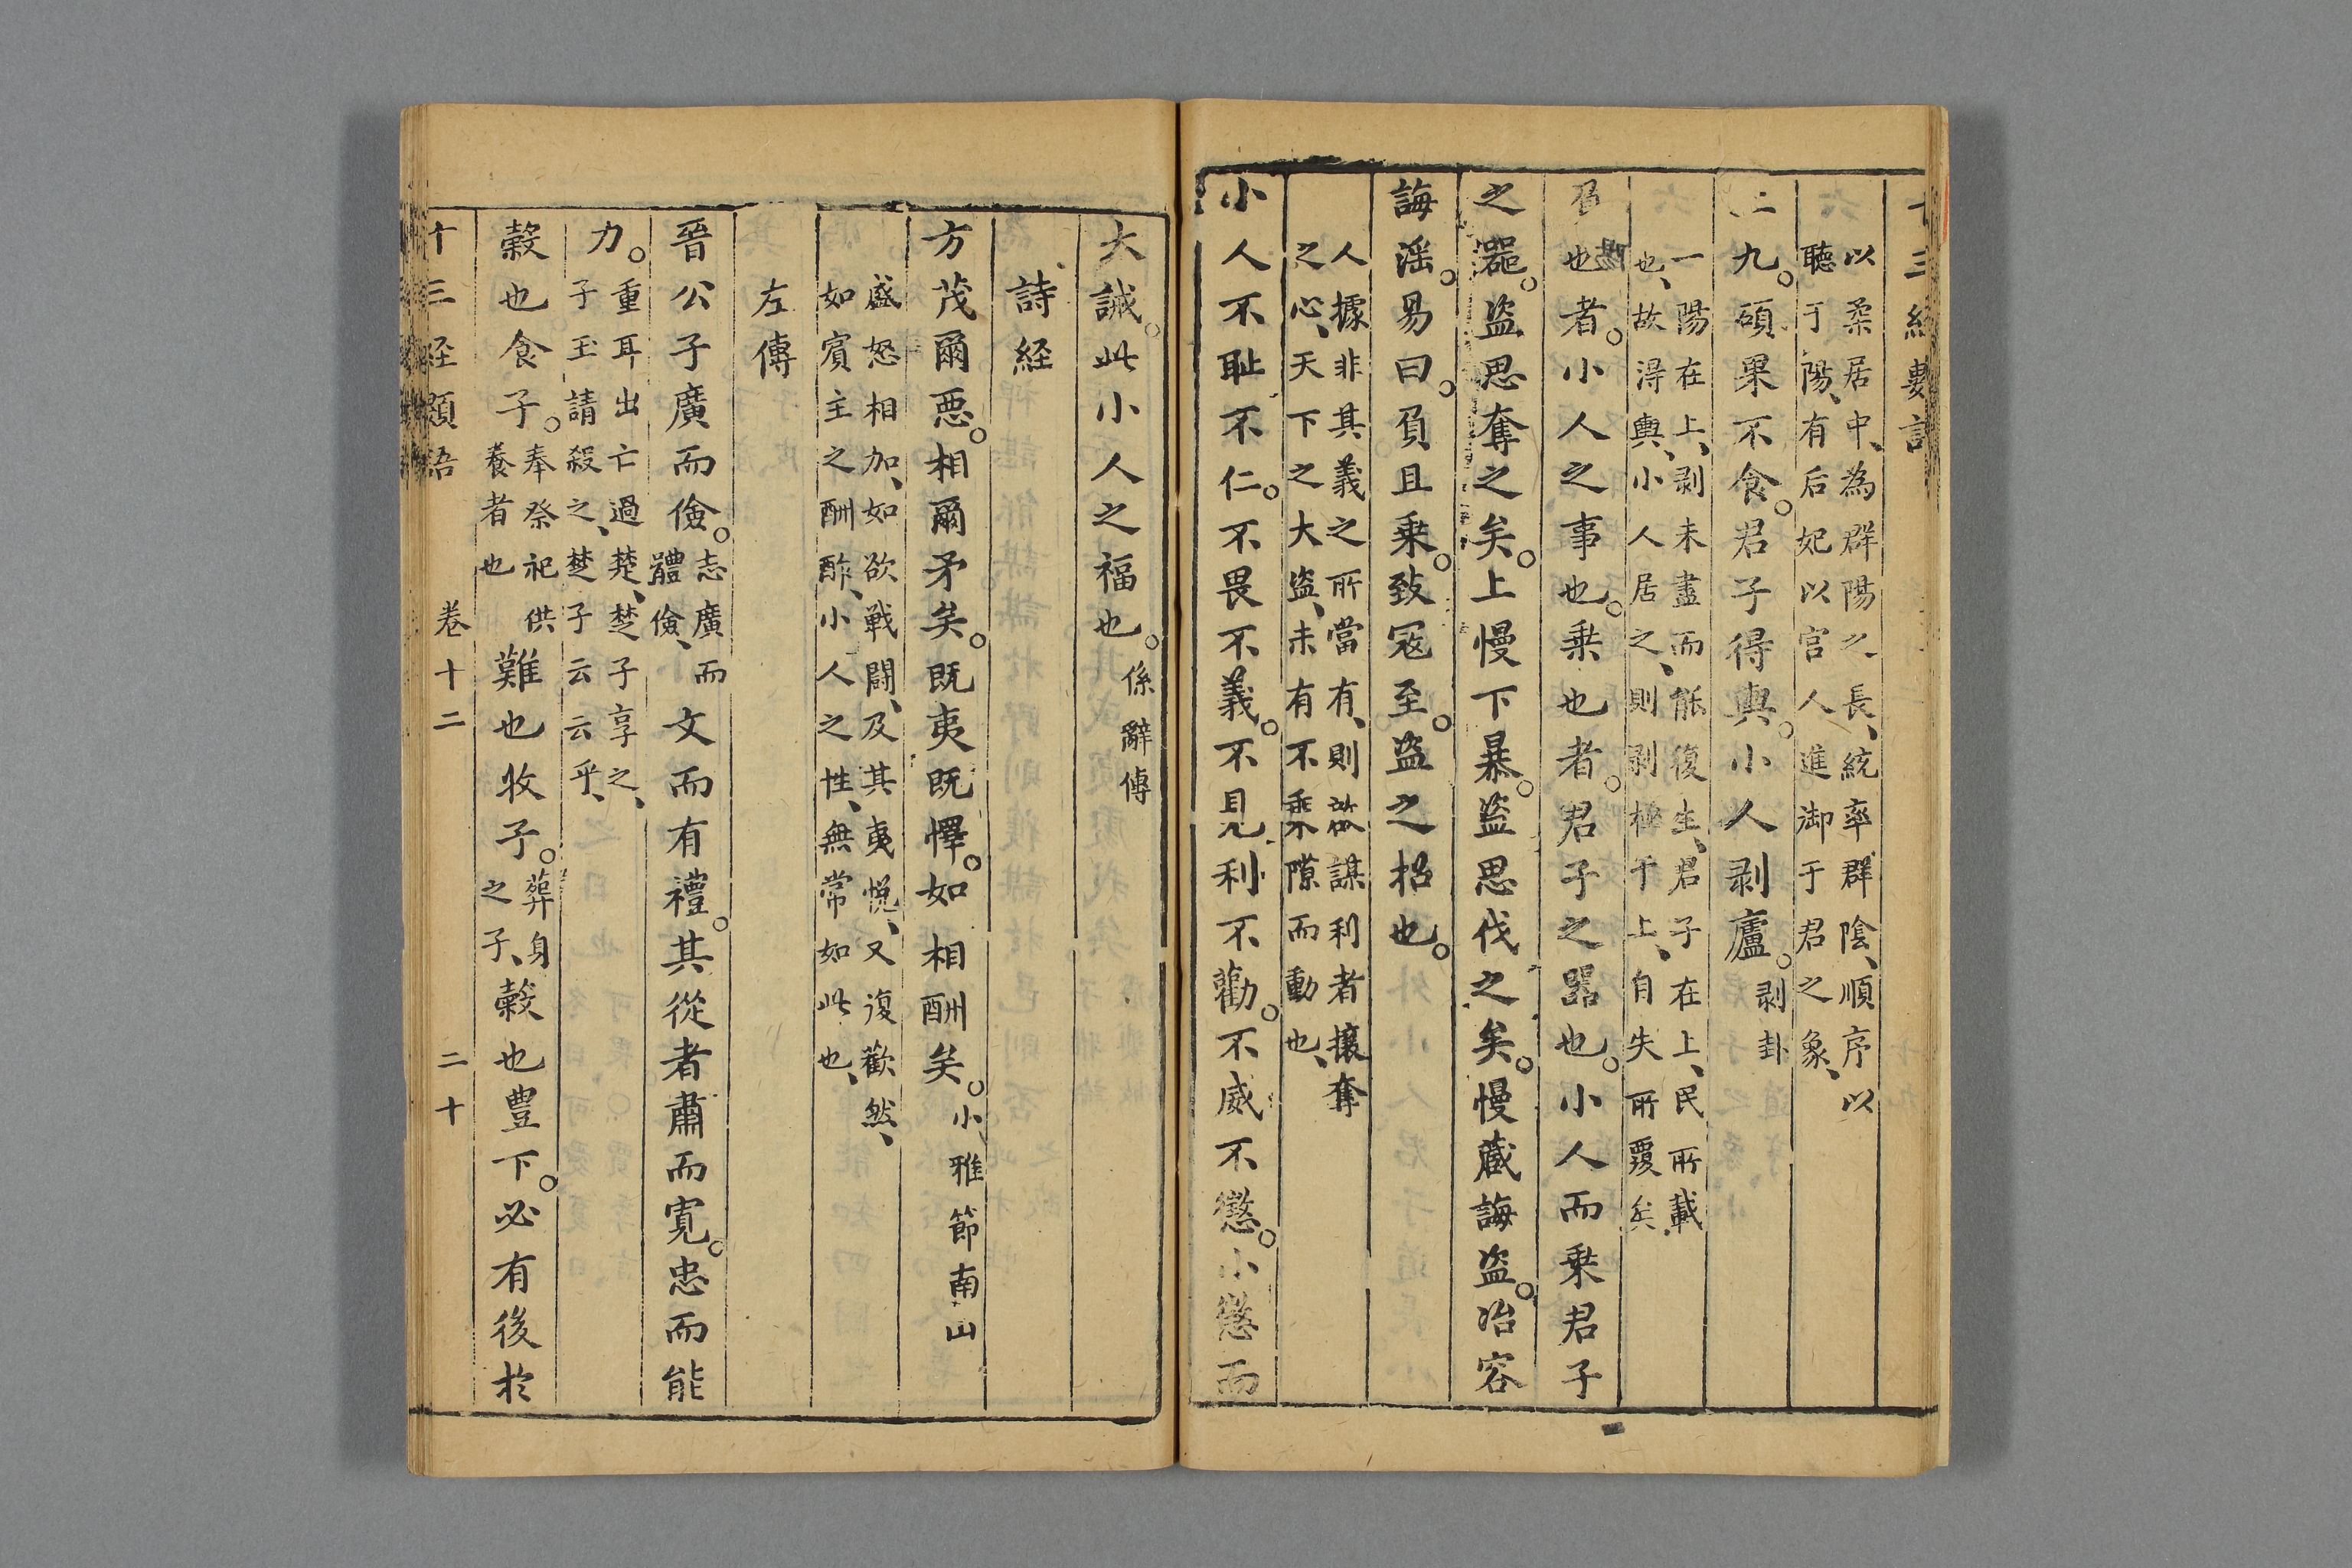 十三經
以柔居中、為群陽之長、統率群陰、順序以
聽于陽、有后妃以宮人進御于君之象、
九。碩果不食。君子得輿。小人剥廬。剥卦
一陽在上、剥未盡而能復生、君子在上、民所載
也、故得輿、小人居之、則剥極于上、自失所覆矣
也者。小人之事也。乗也者。君子之噐也。小人而乗君子
之噐。盗思奪之矣。上慢下暴。盗思伐之矣。慢蔵誨盗。冶容
誨滛。易曰。負且乗。致寇至。盗之招也。
人據非其義之所當有、則啟謀利者攘奪
之心、天下之大盗、未有不乗隙而動也、
小人不耻不仁。不畏不義。不見利不勸。不威不懲。小懲而
大誡。此小人之福也。係辭傳
詩経
方茂爾悪。相爾矛矣。既夷既懌。如相酬矣。小雅節南山
盛怒相加、如欲戦闘、及其夷悦、又復歡然、
如賓主之酬酢、小人之性、無常如此也、
左傳
晉公子廣而儉。志廣而體儉、文而有禮。其從者肅而寛。忠而能
力。重耳出亡過楚、楚子享之、子玉請殺之、楚子云云乎、
糓也食子。奉祭祀供養者也難也收子。葬身之子、糓也豊下。必有後於
十三経類語　卷十二　二十